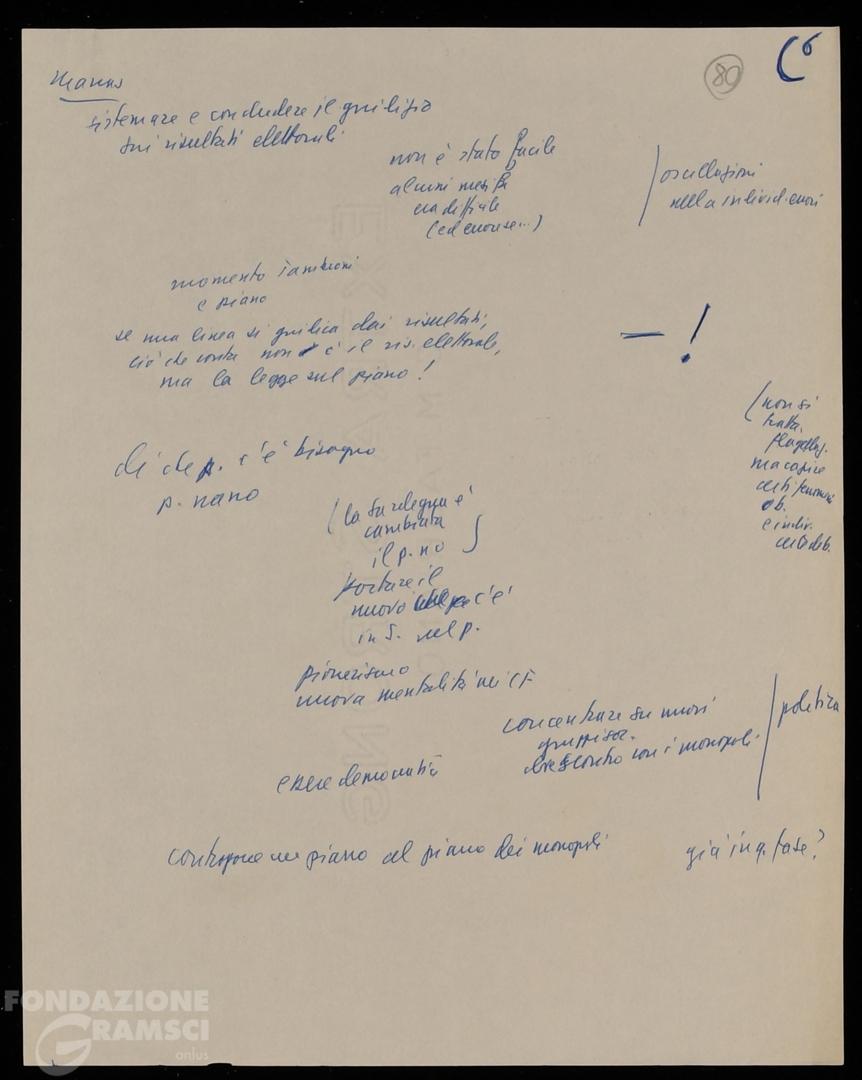 80
6
sistemare e concludere il giudizio
sui risultati elettorali
non è stato facile
alcuni mesi fa
era difficile
(ed erronse...)
oscillazioni
nella individ. errori
momento Tambroni
e piano
se una linea si giudica dai risultati,
ciò che conta non è il ris. elettorale,
ma la legge sul piano!
— !
(non si
tratta
flagellaz.
ma capire
certi fenomeni
ob.
e indiv.
di che p. c'è bisogno
(la Sardegna è
cambiata
il p. no
portare il
nuovo che c'è
in S. nel p.
pionerismo
nuova mentalità nei CF
concentrare su nuovi
scontro con i monopoli
politica
essere democratici
contrapporre un piano al piano dei monopoli
già in q. fase?
FONDAZIONE
GRAMSCI
onlus